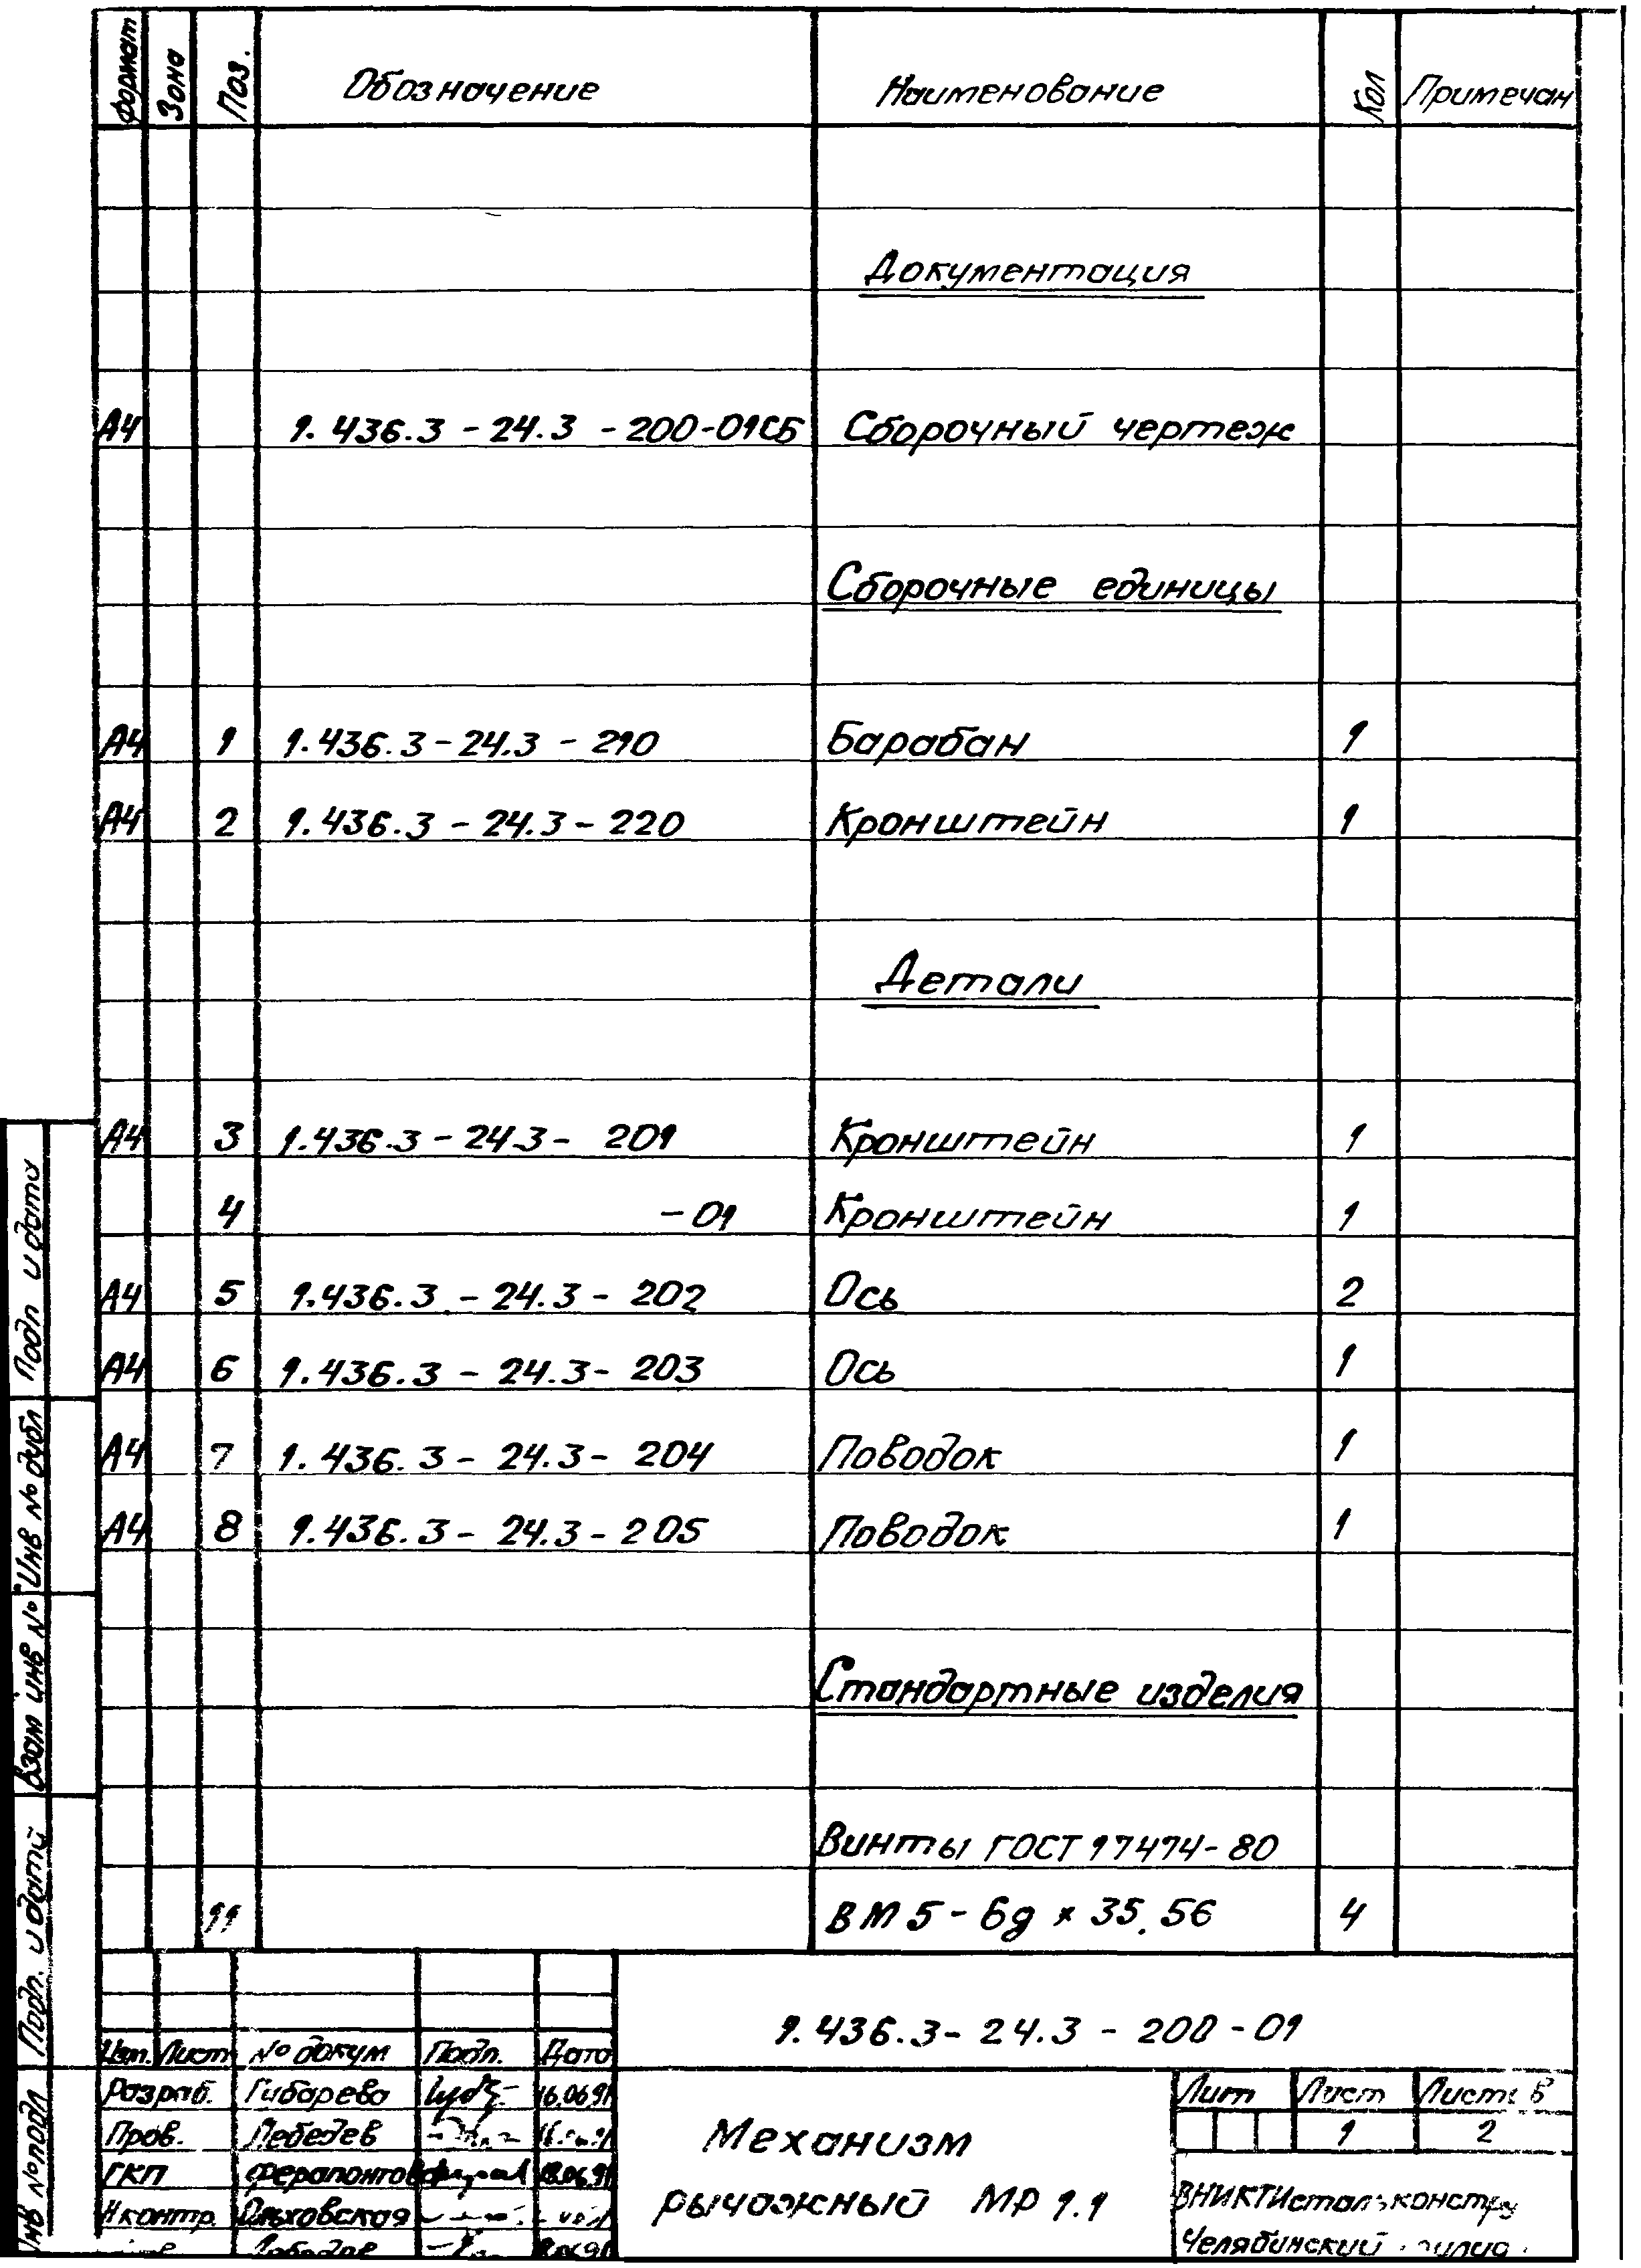 Формат Зона Поз. Обозначение Наименование Кол Примечан
Документация
А4 1.436.3-24.3-200-01СБ Сборочный чертеж
Сборочные единицы
А4 1 1.436.3-24.3-210 Барабан 1
А4 2 1.436.3-24.3-220 Кронштейн 1
Детали
А4 3 1.436.3-24.3-201 Кронштейн 1
4 -01 Кронштейн 1
А4 5 1.436.3-24.3-202 Ось 2
А4 6 1.436.3-24.3-203 Ось 1
А4 7 1.436.3-24.3-204 Поводок 1
А4 8 1.436.3-24.3-205 Поводок 1
Стандартные изделия
Винты ГОСТ 17474-80
11 ВМ5-6g×35.56 4
Подп и дата
Инв № дубл
Взам инв №
Подп. и дата
Инв № подл
1.436.3-24.3-200-01
Изм. Лист № докум Подп. Дата
Разраб. Гибарева 16.06.91
Пров. Лебедев
ГКП Ферапонтов 18.06.91
Н контр. Ольховская
Лебедев
Механизм
рычажный МР 1.1
Лит Лист Листов
1 2
ВНИКТИстальконстру
Челябинский филиа